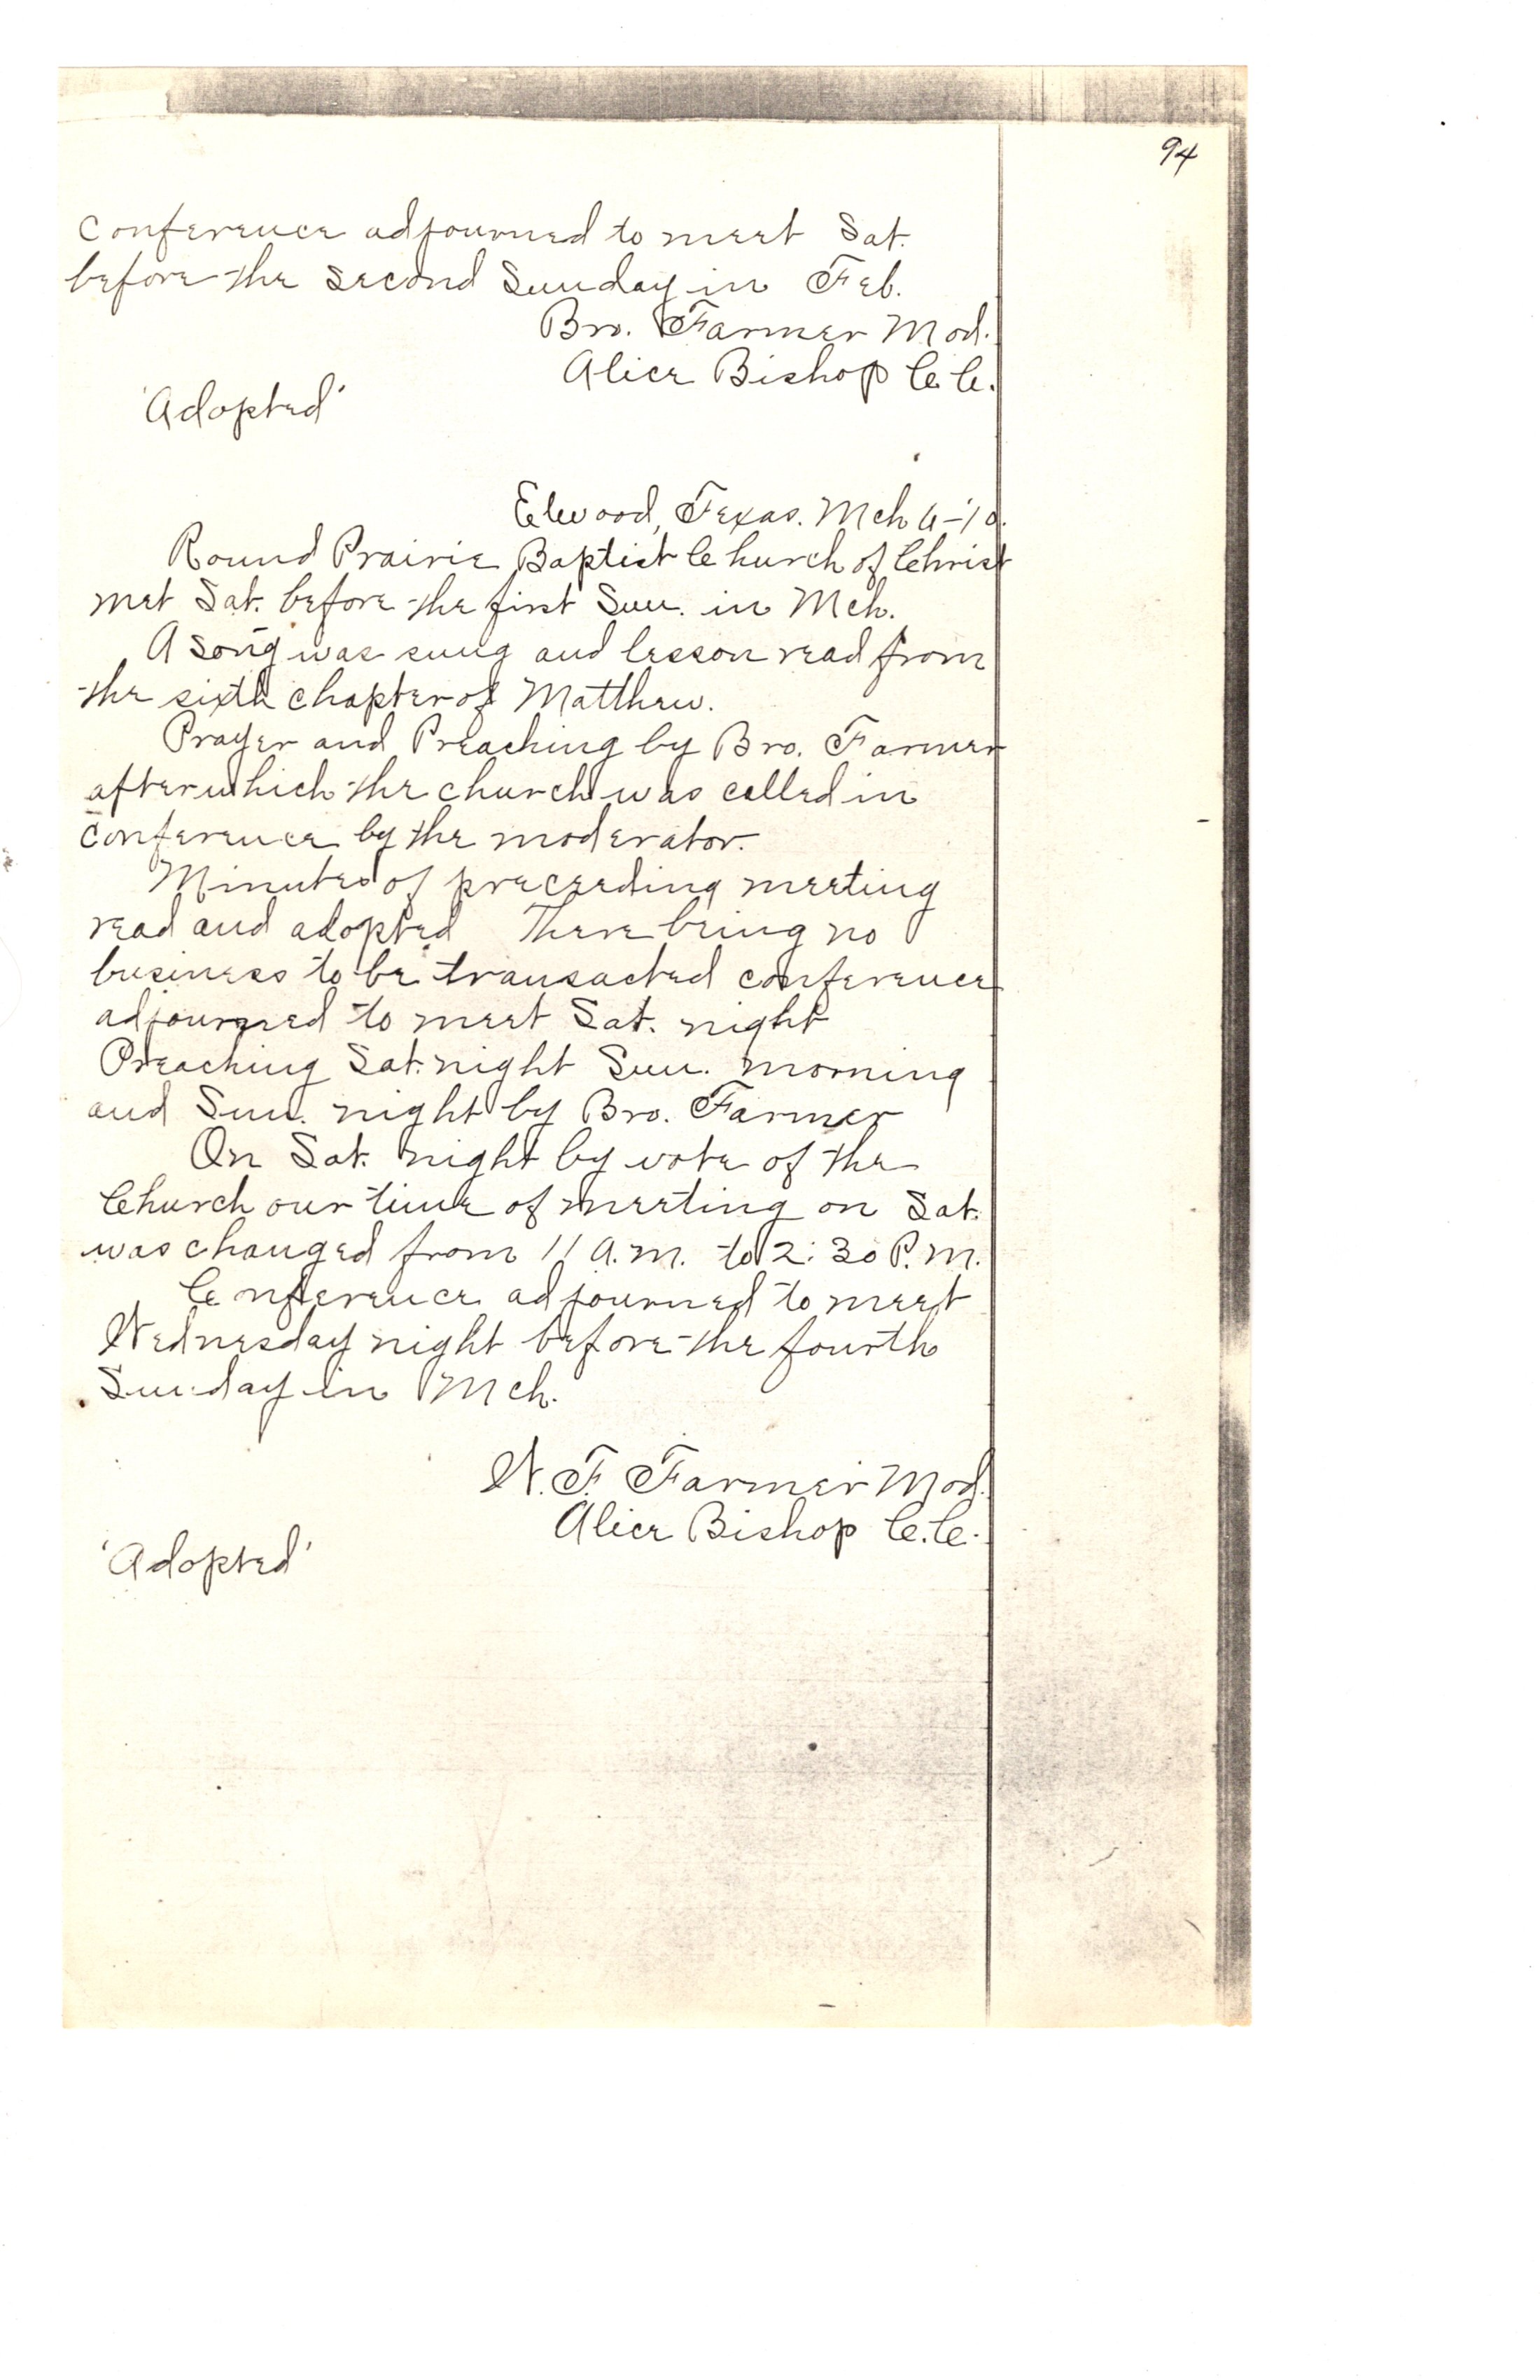 94
Conference adjourned to meet Sat.
before the second Sunday in Feb.
Bro. Farmer Mod.
Alice Bishop C.C.
'Adopted'
Elwood, Texas. Mch
Round Prairie Baptist Church of Christ
met Sat. before the first Sun. in Mch.
A song was sung and lesson read from
the sixth chapter of Matthew.
Prayer and Preaching by Bro. Farmer
after which the church was called in
conference by the moderator.
Minutes of preceeding meeting
read and adopted There being no
business to be transacted conference
adjourned to meet Sat. night
Preaching Sat. night Sun. morning
and Sun. night by Bro. Farmer
On Sat. night by vote of the
Church our time of meeting on Sat.
was changed from 11 A.M. to 2:30 P.M.
Conference adjourned to meet
Wednesday night before the fourth
Sunday in Mch.
W. F. Farmer Mod.
Alice Bishop C.C.
'Adopted'